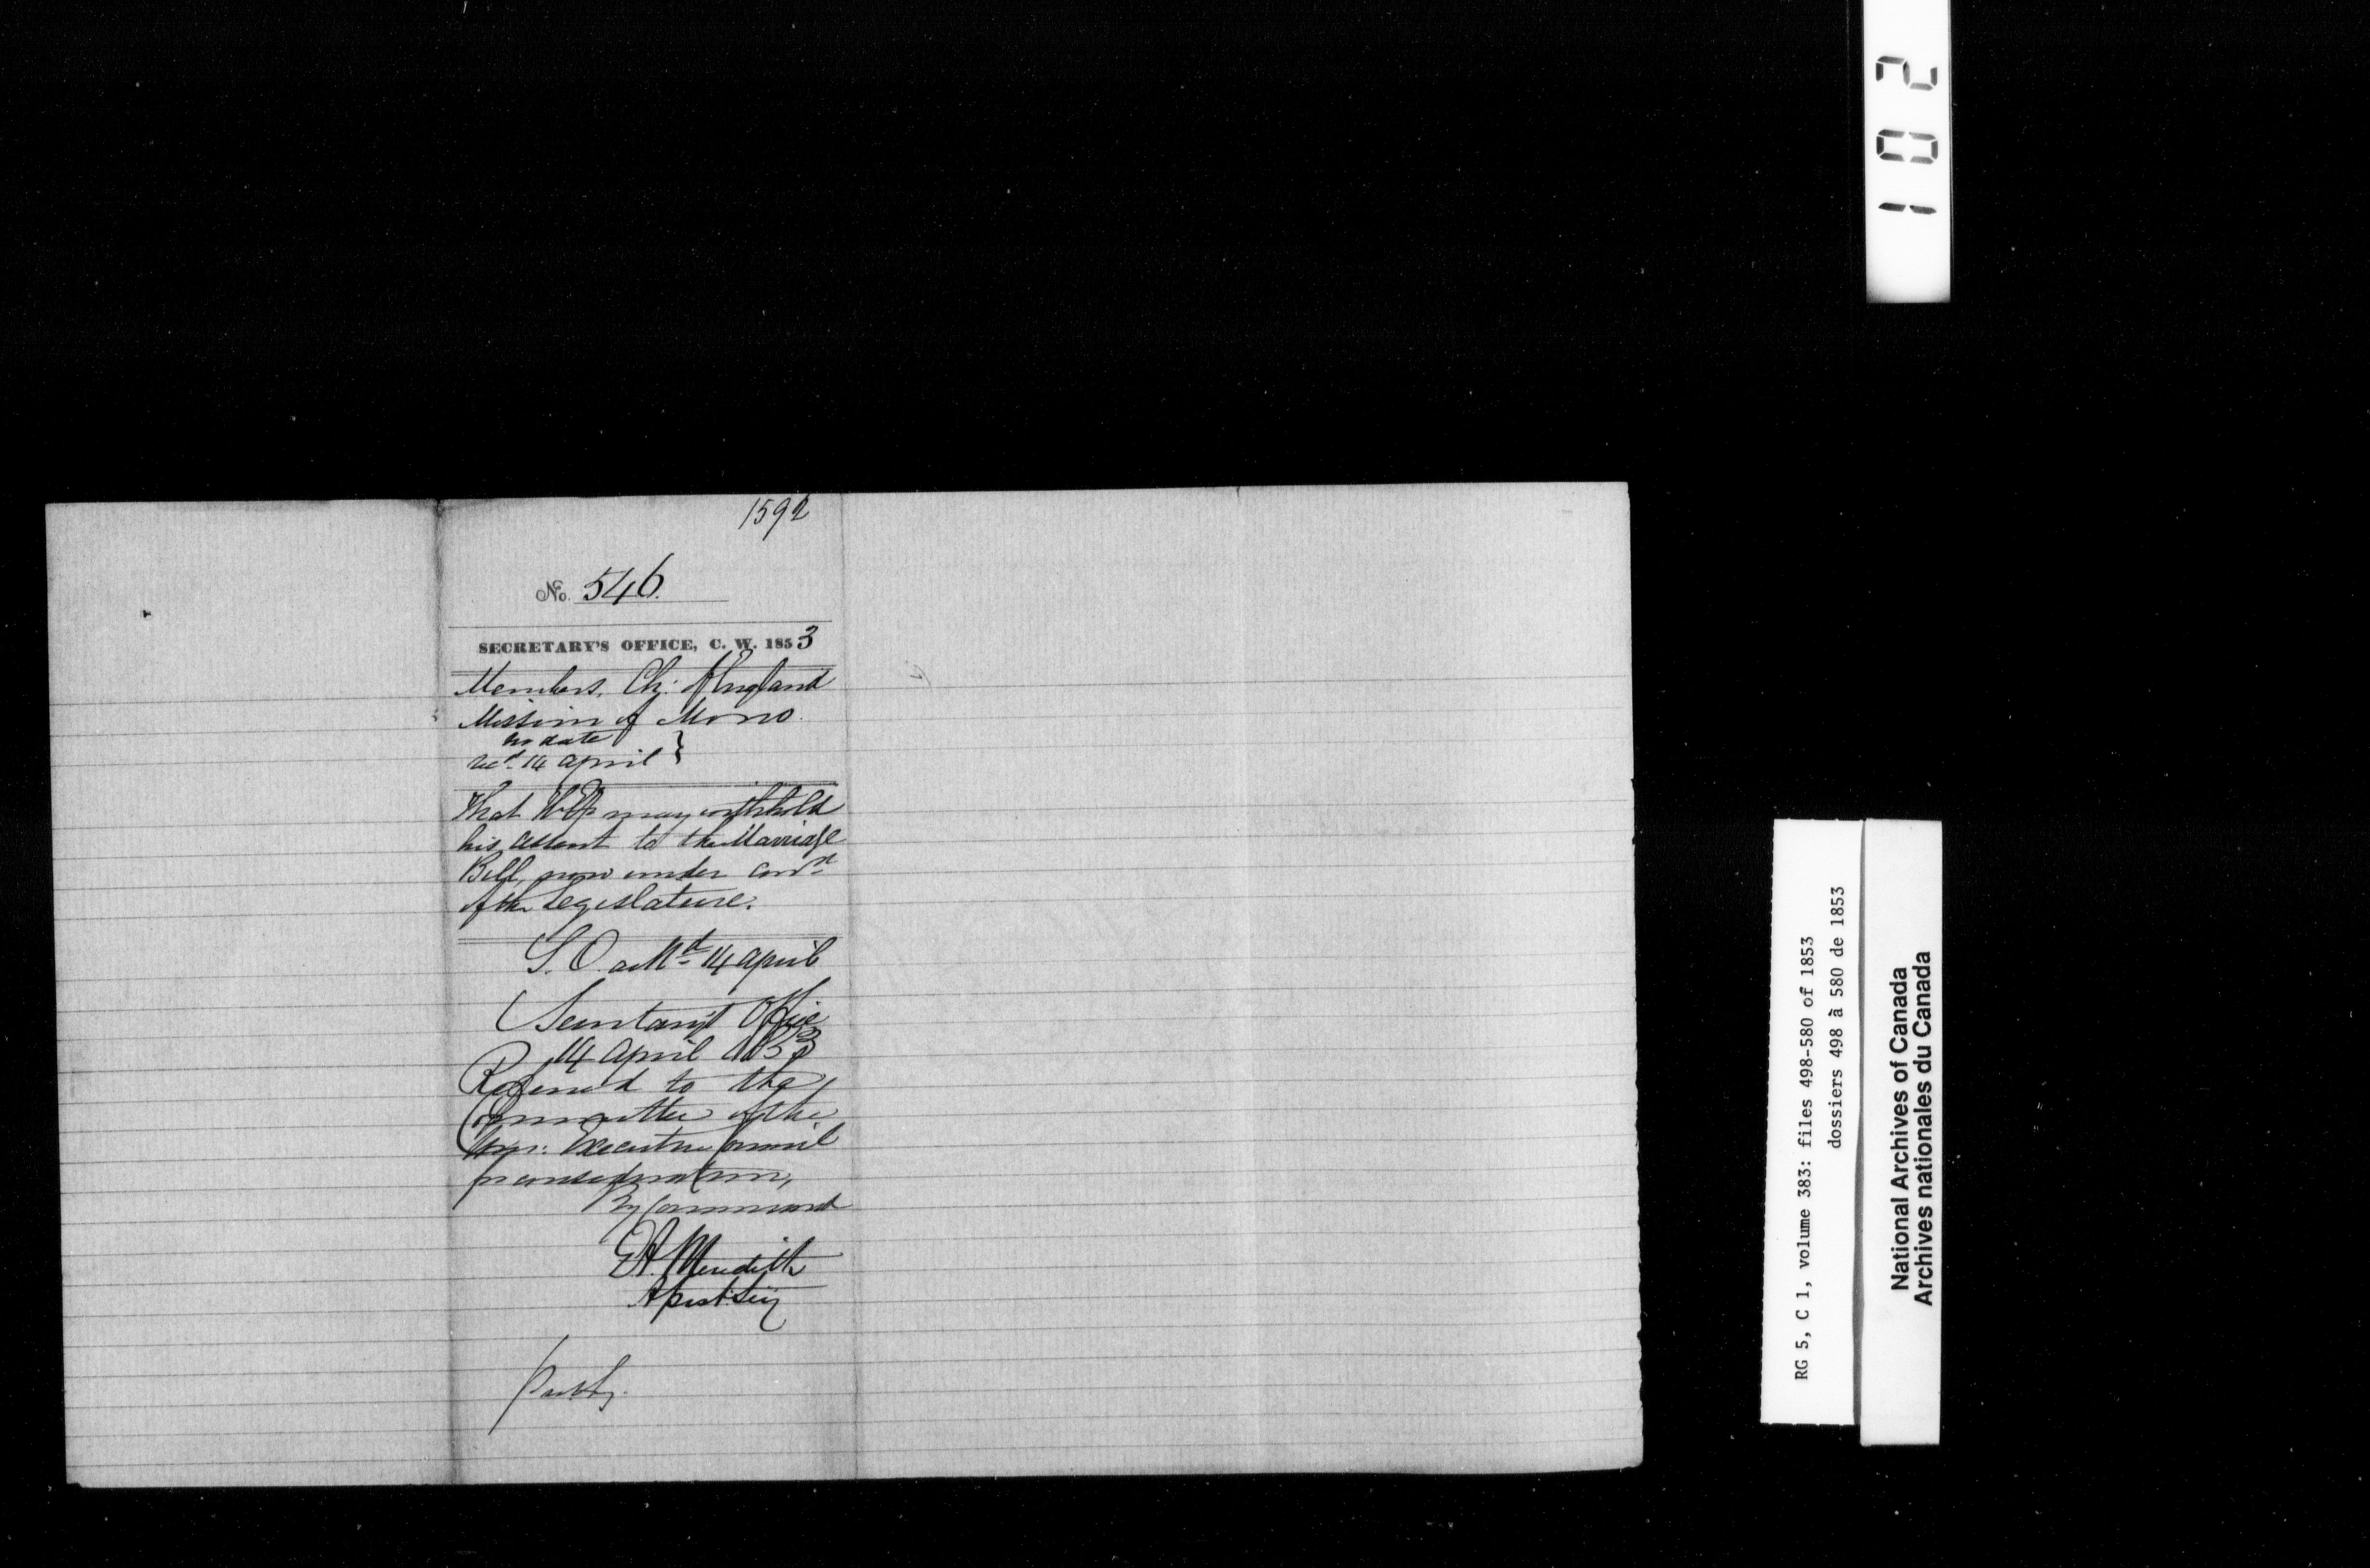 1592
No. 546.
SECRETARY'S OFFICE, C. W. 1853
Members, Ch: of England
Mission of Mono.
no date
recd. 14 April }
That H.E. may withhold
his assent to the Marriage
Bill, now under consn
of the Legislature.
S. O. 14 April
Secretary's Office
14 April 1853
Referred to the
Committee of the
Hon: Executive Council
for consideration,
By Command
E.A. Meredith
Asst. Secy
102
RG 5, C 1, volume 383: files 498-580 of 1853
dossiers 498 à 580 de 1853
National Archives of Canada
Archives nationales du Canada